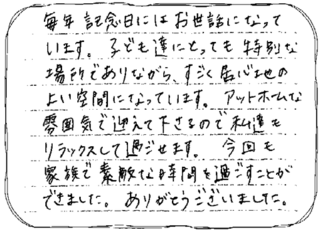 毎年 記念日にはお世話になって
います。子ども達にとっても特別な
場所でありながら、すごく居心地の
よい空間になっています。アットホームな
雰囲気で迎えて下さるので私達も
リラックスして過ごせます。 今回も
家族で素敵な時間を過ごすことが
できました。ありがとうございました。